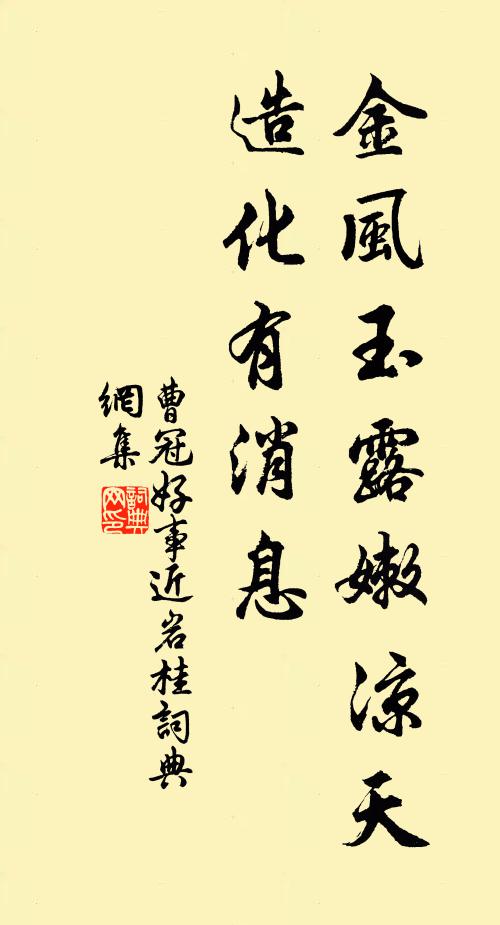 金風玉露嫩涼天
造化有消息
曹冠好事近岩桂詞典
網集
詞典
网印